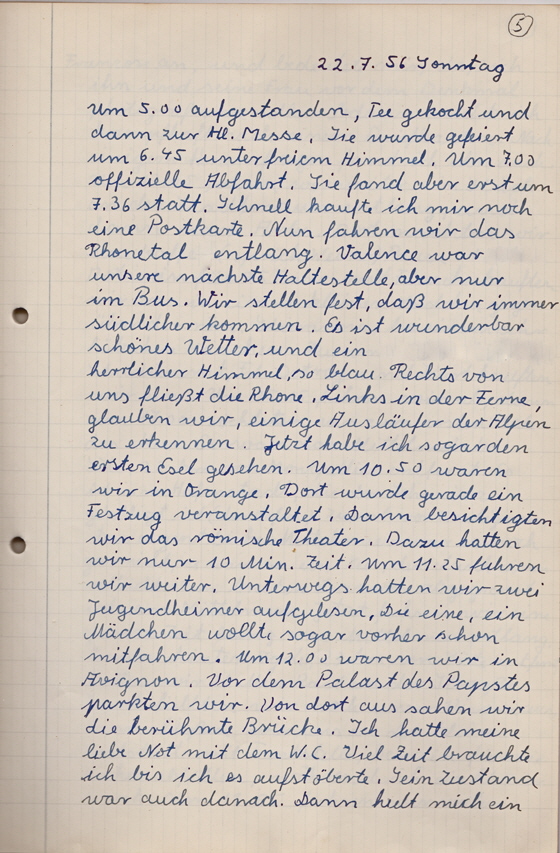 5
22.7.56 Sonntag
Um 5.00 aufgestanden, Tee gekocht und
dann zur Hl. Messe. Sie wurde gefeiert
um 6.45 unter freiem Himmel. Um 7.00
offizielle Abfahrt. Sie fand aber erst um
7.36 statt. Schnell kaufte ich mir noch
eine Postkarte. Nun fahren wir das
Rhonetal entlang. Valence war
unsere nächste Haltestelle, aber nur
im Bus. Wir stellen fest, daß wir immer
südlicher kommen. Es ist wunderbar
schönes Wetter, und ein
herrlicher Himmel, so blau. Rechts von
uns fließt die Rhone. Links in der Ferne,
glauben wir, einige Ausläufer der Alpen
zu erkennen. Jetzt habe ich sogar den
ersten Esel gesehen. Um 10.50 waren
wir in Orange. Dort wurde gerade ein
Festzug veranstaltet. Dann besichtigten
wir das römische Theater. Dazu hatten
wir nur 10 Min. Zeit. Um 11.25 fuhren
wir weiter. Unterwegs hatten wir zwei
Jugendheimer aufgelesen, Die eine, ein
Mädchen wollte sogar vorher schon
mitfahren. Um 12.00 waren wir in
Avignon. Vor dem Palast des Papstes
parkten wir. Von dort aus sahen wir
die berühmte Brücke. Ich hatte meine
liebe Not mit dem W.C. Viel Zeit brauchte
ich bis ich es aufstöberte. Sein Zustand
war auch danach. Dann hielt mich ein